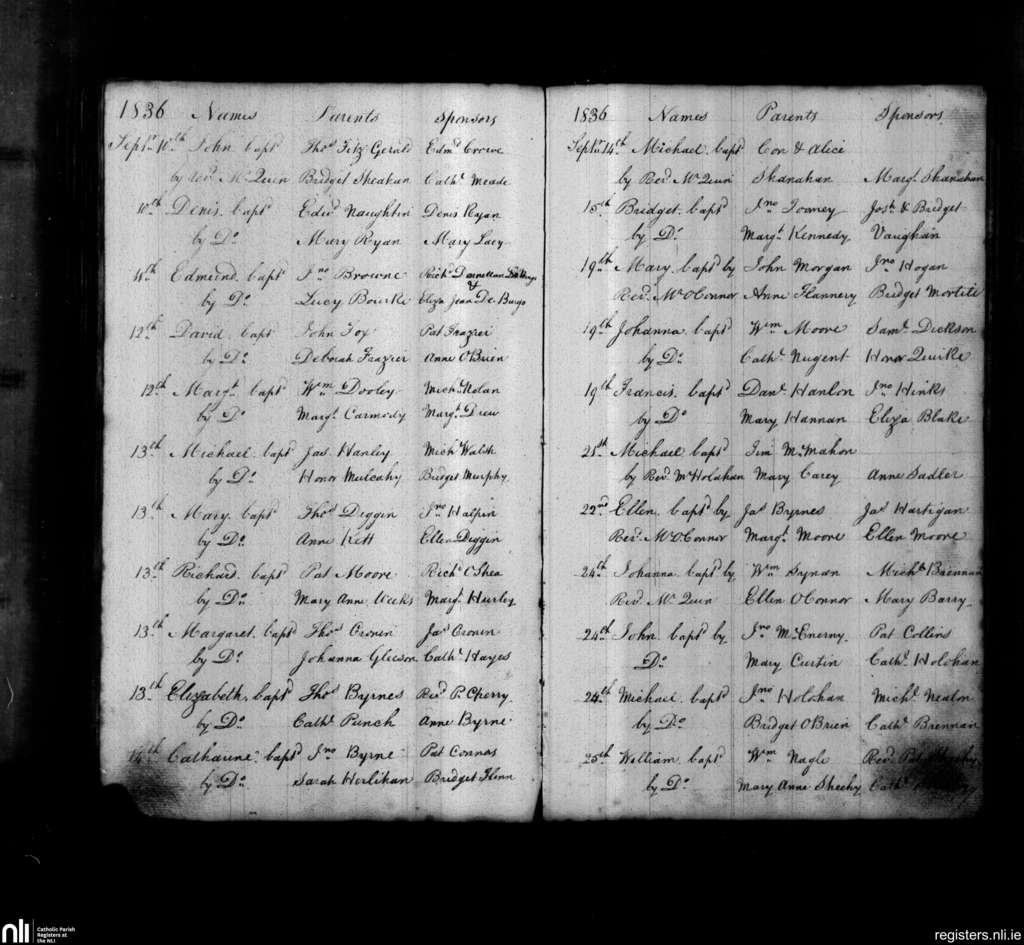 1836 Names Parents Sponsors
Septr. 10th John bapd. Thos. Fitz-Gerald Edmd. Crowe
by Revd. Mr. Quin Bridget Sheahan Cathe. Meade
10th Denis bapd. Edwd. Naughtin Denis Ryan
by Do. Mary Ryan Mary Lacy
4th Edmund bapd. Jno. Browne Richd. Donnellan
by Do. Lucy Bourke & Eliza Jean De Burgo
12th David bapd. John Fox Pat Frazier
by Do. Deborah Frazier Anne O'Brien
12th Margt. bapd. Wm. Dooley Michl. Nolan
by Do. Margt. Carmody Margt. Drew
13th Michael bapd. Jas. Hanley Michl. Walsh
by Do. Honor Mulcahy Bridget Murphy
13th Mary bapd. Thos. Diggin Jno. Halpin
by Do. Anne Kett Ellen Diggin
13th Richard bapd. Pat Moore Richd. O'Shea
by Do. Mary Anne Weeks Margt. Hurley
13th Margaret bapd. Thos. Cronin Jas. Cronin
by Do. Johanna Gleeson Cathe. Hayes
13th Elizabeth bapd. Thos. Byrnes Revd. P. Cherry
by Do. Cathe. Punch Anne Byrne
14th Catharine bapd. Jno. Byrne Pat Connas
by Do. Sarah Horlihan Bridget Flinn
1836 Names Parents Sponsors
Septr. 14th Michael bapd. Con & Alice
by Revd. Mr. Quin Shanahan Margt. Shanahan
15th Bridget bapd. Jno. Toomey Josh. & Bridget
by Do. Margt. Kennedy Vaughan
19th Mary bapd. by John Morgan Jno. Hogan
Revd. Mr. O'Connor Anne Flannery Bridget
19th Johanna bapd. Wm. Moore Saml. Dickson
by Do. Cathe. Nugent Honor Quirke
19th Francis bapd. Danl. Hanlon Jno. Hinks
by Do. Mary Hannan Eliza Blake
21st Michael bapd. Jim McMahon
by Revd. Mr. Holahan Mary Carey Anne Sadler
22nd Ellen bapd. by Jas. Byrnes Jas. Hartigan
Revd. Mr. O'Connor Margt. Moore Ellen Moore
24th Johanna bapd. by Wm. Synan Michl. Brennan
Revd. Mr. Quin Ellen O'Connor Mary Barry
24th John bapd. by Jno. McEnerny Pat Collins
Do. Mary Curtin Cathe. Holohan
24th Michael bapd. Jno. Holohan Michl. Nealon
by Do. Bridget O'Brien Cathe. Brennan
25th William bapd. Wm. Nagle Revd. Pat
by Do. Mary Anne Sheehy Cathe.
nli Catholic Parish
Registers at
the NLI
registers.nli.ie